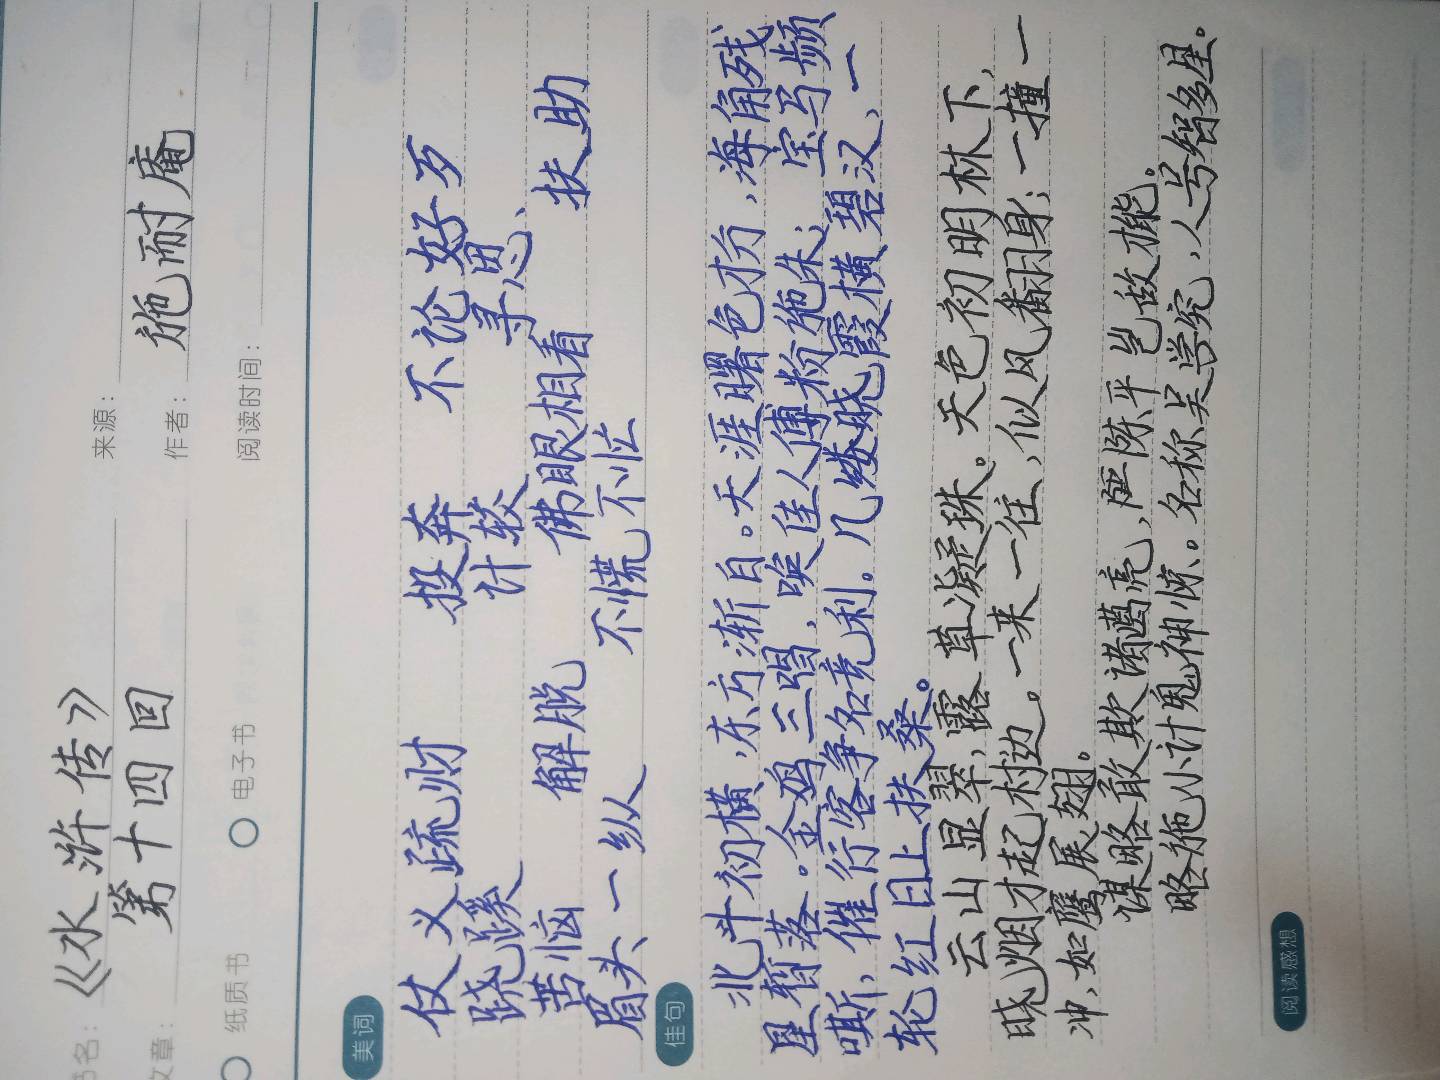 书名：《水浒传》 来源：
文章：第十四回 作者：施耐庵
纸质书 电子书 阅读时间：
美词
仗义疏财 投奔 不论好歹
跷蹊 计较 寻思、
苦恼 解脱 佛眼相看 扶助
眉头、一纵 不慌不忙
佳句
北斗初横，东方渐白。天涯曙色才分，海角残
星暂落。金鸡三唱，唤佳人傅粉施朱；宝马频
嘶，催行客争名竞利。几缕晓霞横碧汉，一
轮红日上扶桑。
云山显翠，露草凝珠。天色初明林下，
晓烟才起村边。一来一往，似风翻身；一撞一
冲，如鹰展翅。
谋略敢欺诸葛亮，陈平岂敌才能。
略施小计鬼神惊。名称吴学究，人号智多星。
阅读感想